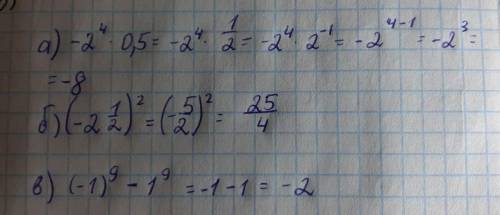 а) -2⁴ · 0,5 = -2⁴ · 1/2 = -2⁴ · 2⁻¹ = -2⁴⁻¹ = -2³ =
= -8
б) (-2 1/2)² = (-5/2)² = 25/4
в) (-1)⁹ - 1⁹ = -1 - 1 = -2